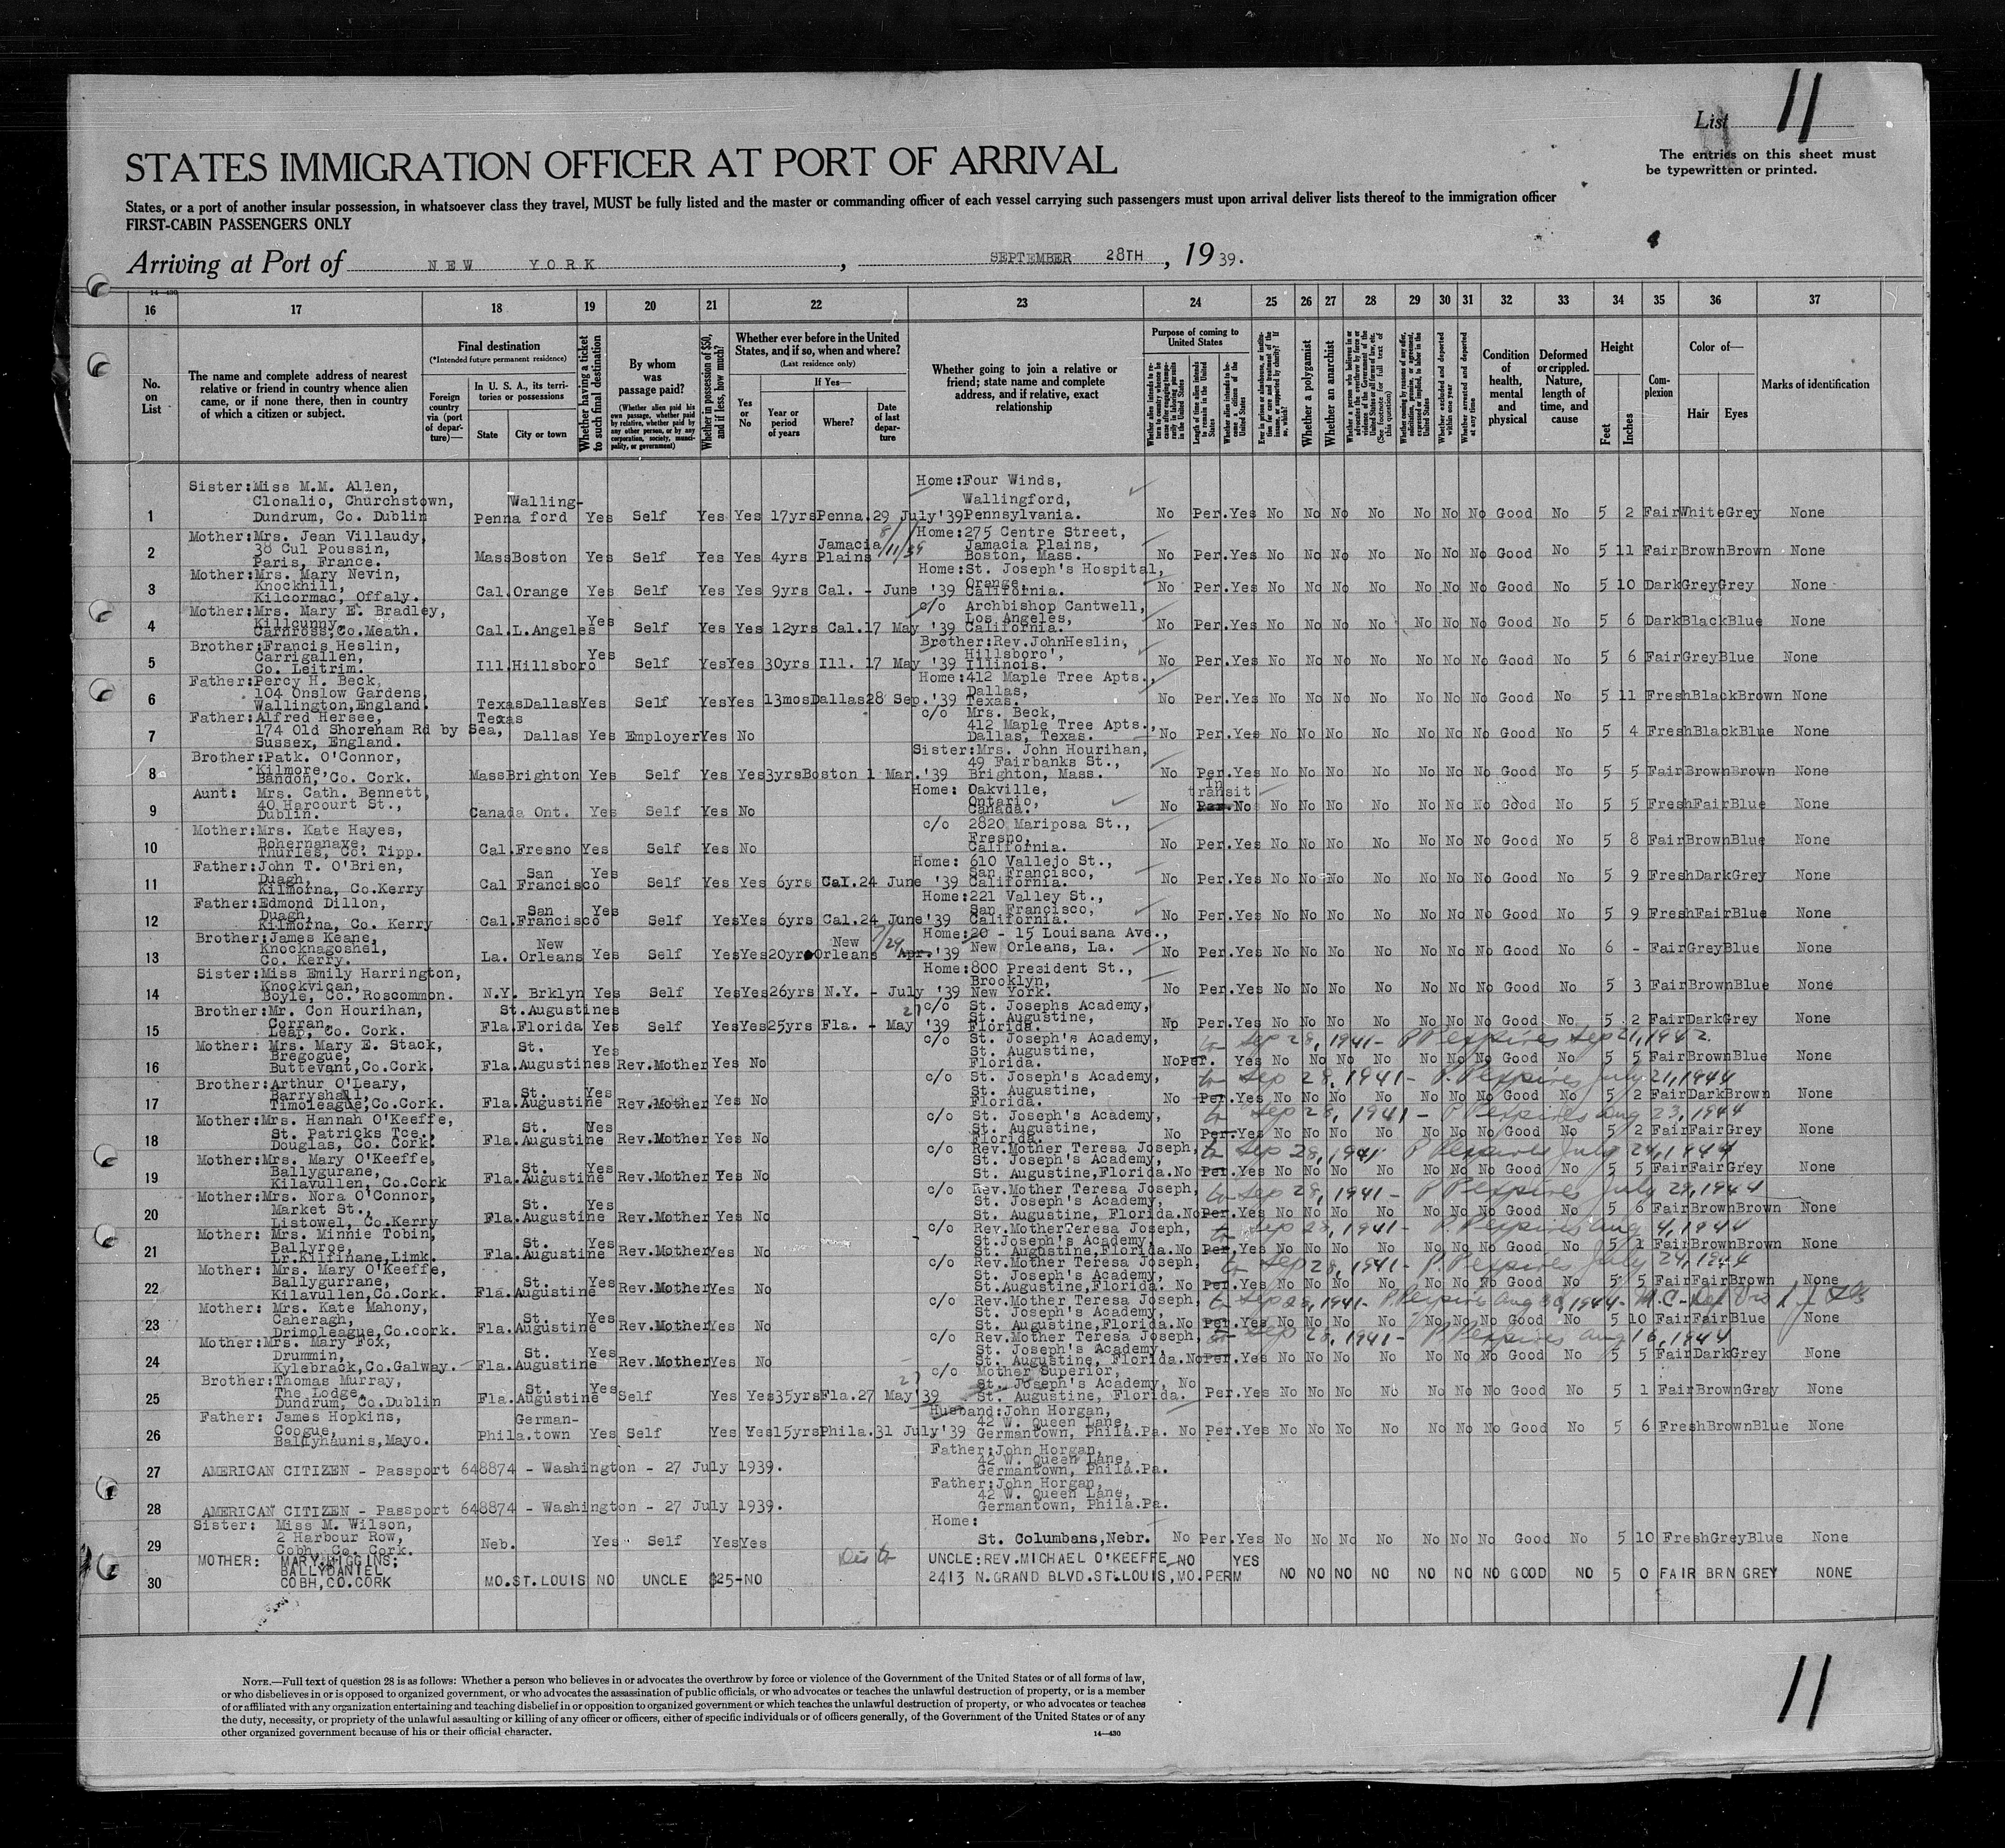 List 11
The entries on this sheet must
be typewritten or printed.
STATES IMMIGRATION OFFICER AT PORT OF ARRIVAL
States, or a port of another insular possession, in whatsoever class they travel, MUST be fully listed and the master or commanding officer of each vessel carrying such passengers must upon arrival deliver lists thereof to the immigration officer
FIRST-CABIN PASSENGERS ONLY
Arriving at Port of NEW YORK, SEPTEMBER 28TH, 1939.
14-430
16 17 18 19 20 21 22 23 24 25 26 27 28 29 30 31 32 33 34 35 36 37
No. on List
The name and complete address of nearest relative or friend in country whence alien came, or if none there, then in country of which a citizen or subject.
Final destination
(*Intended future permanent residence)
Foreign country via (port of departure)—
In U. S. A., its territories or possessions
State
City or town
Whether having a ticket to such final destination
By whom was passage paid?
(Whether alien paid his own passage, whether paid by relative, whether paid by any other person, or by any corporation, society, municipality, or government)
Whether in possession of $50, and if less, how much?
Whether ever before in the United States, and if so, when and where?
(Last residence only)
Yes or No
If Yes—
Year or period of years
Where?
Date of last departure
Whether going to join a relative or friend; state name and complete address, and if relative, exact relationship
Purpose of coming to United States
Length of time alien intends to remain in the United States
Whether alien intends to become a citizen of the United States
Whether a polygamist
Whether an anarchist
Whether excluded and deported within one year
Whether arrested and deported at any time
Condition of health, mental and physical
Deformed or crippled. Nature, length of time, and cause
Height
Feet
Inches
Complexion
Color of—
Hair
Eyes
Marks of identification
Sister:Miss M.M. Allen, Home:Four Winds,
Clonalio, Churchstown, Walling- Wallingford,
1 Dundrum, Co. Dublin Penna ford Yes Self Yes Yes 17yrs Penna. 29 July'39 Pennsylvania. No Per. Yes No No No No No No No Good No 5 2 Fair White Grey None
Mother:Mrs. Jean Villaudy, Home:275 Centre Street,
38 Cul Poussin, Jamacia 8/11/39 Jamacia Plains,
2 Paris, France. Mass Boston Yes Self Yes Yes 4yrs Plains Boston, Mass. No Per. Yes No No No No No No No Good No 5 11 Fair Brown Brown None
Mother:Mrs. Mary Nevin, Home:St. Joseph's Hospital,
Knockhill, Orange,
3 Kilcormac, Offaly. Cal. Orange Yes Self Yes Yes 9yrs Cal. - June '39 California. No Per. Yes No No No No No No No Good No 5 10 Dark Grey Grey None
Mother:Mrs. Mary E. Bradley, c/o Archbishop Cantwell,
Killcunny, Los Angeles,
4 Carnross,Co.Meath. Cal. L.Angeles Yes Self Yes Yes 12yrs Cal. 17 May '39 California. No Per. Yes No No No No No No No Good No 5 6 Dark Black Blue None
Brother:Francis Heslin, Brother:Rev.JohnHeslin,
Carrigallen, Hillsboro',
5 Co. Leitrim. Ill. Hillsboro Yes Self Yes Yes 30yrs Ill. 17 May '39 Illinois. No Per. Yes No No No No No No No Good No 5 6 Fair Grey Blue None
Father:Percy H. Beck, Home:412 Maple Tree Apts.,
104 Onslow Gardens, Dallas,
6 Wallington,England. Texas Dallas Yes Self Yes Yes 13mos Dallas 28 Sep.'39 Texas. No Per. Yes No No No No No No No Good No 5 11 Fresh Black Brown None
Father:Alfred Hersee, Texas c/o Mrs. Beck,
174 Old Shoreham Rd by Sea, 412 Maple Tree Apts.,
7 Sussex, England. Dallas Yes Employer Yes No Dallas, Texas. No Per. Yes No No No No No No No Good No 5 4 Fresh Black Blue None
Brother:Patk. O'Connor, Sister:Mrs. John Hourihan,
Kilmore, 49 Fairbanks St.,
8 Bandon, Co. Cork. Mass Brighton Yes Self Yes Yes 3yrs Boston 1 Mar.'39 Brighton, Mass. No Per. Yes No No No No No No No Good No 5 5 Fair Brown Brown None
Aunt: Mrs. Cath. Bennett, Home: Oakville, In
40 Harcourt St., Ontario, transit
9 Dublin. Canada Ont. Yes Self Yes No Canada. No Per. No No No No No No No No Good No 5 5 Fresh Fair Blue None
Mother:Mrs. Kate Hayes, c/o 2820 Mariposa St.,
Bohernanave, Fresno,
10 Thurles, Co. Tipp. Cal. Fresno Yes Self Yes No California. No Per. Yes No No No No No No No Good No 5 8 Fair Brown Blue None
Father:John T. O'Brien, Home: 610 Vallejo St.,
Duagh, San Yes San Francisco,
11 Kilmorna, Co.Kerry Cal Francisco Self Yes Yes 6yrs Cal. 24 June '39 California. No Per. Yes No No No No No No No Good No 5 9 Fresh Dark Grey None
Father:Edmond Dillon, Home:221 Valley St.,
Duagh, San Yes San Francisco,
12 Kilmorna, Co. Kerry Cal. Francisco Self Yes Yes 6yrs Cal. 24 June'39 California. No Per. Yes No No No No No No No Good No 5 9 Fresh Fair Blue None
Brother:James Keane, Home:20 - 15 Louisana Ave.,
Knocknagoshel, New New 7/29 New Orleans, La.
13 Co. Kerry. La. Orleans Yes Self Yes Yes 20yrs Orleans Apr.'39 No Per. Yes No No No No No No No Good No 6 - Fair Grey Blue None
Sister:Miss Emily Harrington, Home:800 President St.,
Knockvican, Brooklyn,
14 Boyle, Co. Roscommon. N.Y. Brklyn Yes Self Yes Yes 26yrs N.Y. - July '39 New York. No Per. Yes No No No No No No No Good No 5 3 Fair Brown Blue None
Brother:Mr. Con Hourihan, St.Augustines 27 c/o St. Josephs Academy,
Corran, St. Augustine,
15 Leap, Co. Cork. Fla. Florida Yes Self Yes Yes 25yrs Fla. - May '39 Florida. No Per. Yes No No No No No No No Good No 5 2 Fair Dark Grey None
Mother: Mrs. Mary E. Stack, St. Yes c/o St. Joseph's Academy, to Sep 28, 1941 - PP expires Sep 21, 1942
Bregogue, St. Augustine,
16 Buttevant,Co.Cork. Fla. Augustines Rev.Mother Yes No Florida. No Per. Yes No No No No No No No Good No 5 5 Fair Brown Blue None
Brother:Arthur O'Leary, c/o St. Joseph's Academy, to Sep 28, 1941 - P.P expires July 21, 1944
Barryshall, St. Yes St. Augustine,
17 Timoleague,Co.Cork. Fla. Augustine Rev.Mother Yes No Florida. No Per. Yes No No No No No No No Good No 5 2 Fair Dark Brown None
Mother:Mrs. Hannah O'Keeffe, c/o St. Joseph's Academy, to Sep 28, 1941 - PP expires Aug 23, 1944
St. Patricks Tce., St. Yes St. Augustine,
18 Douglas, Co. Cork. Fla. Augustine Rev.Mother Yes No Florida. No Per. Yes No No No No No No No Good No 5 2 Fair Fair Grey None
Mother:Mrs. Mary O'Keeffe, c/o Rev.Mother Teresa Joseph, to Sep 28, 1941 - PP expires July 24, 1944
Ballygurane, St. Yes St. Joseph's Academy,
19 Kilavullen, Co.Cork Fla. Augustine Rev.Mother Yes No St. Augustine,Florida. No Per. Yes No No No No No No No Good No 5 5 Fair Fair Grey None
Mother:Mrs. Nora O'Connor, c/o Rev.Mother Teresa Joseph, to Sep 28, 1941 - PP expires July 29, 1944
Market St., St. Yes St. Joseph's Academy,
20 Listowel, Co.Kerry Fla. Augustine Rev.Mother Yes No St. Augustine, Florida. No Per. Yes No No No No No No No Good No 5 6 Fair Brown Brown None
Mother: Mrs. Minnie Tobin, c/o Rev.MotherTeresa Joseph, to Sep 28, 1941 - P.P expires Aug 4, 1944
Ballyroe, St. Yes St.Joseph's Academy,
21 Lr.Kilfinane,Limk. Fla. Augustine Rev.Mother Yes No St. Augustine,Florida. No Per. Yes No No No No No No No Good No 5 1 Fair Brown Brown None
Mother: Mrs. Mary O'Keeffe, c/o Rev.Mother Teresa Joseph, to Sep 28, 1941 - P.P expires July 24, 1944
Ballygurrane, St. Yes St. Joseph's Academy,
22 Kilavullen,Co.Cork. Fla. Augustine Rev.Mother Yes No St.Augustine,Florida. No Per. Yes No No No No No No No Good No 5 5 Fair Fair Brown None
Mother: Mrs. Kate Mahony, c/o Rev.Mother Teresa Joseph, to Sep 28, 1941 - P.P expires Aug 30, 1944 - M.C.
Caheragh, St. Yes St. Joseph's Academy,
23 Drimoleague,Co.cork. Fla. Augustine Rev.Mother Yes No St. Augustine,Florida. No Per. Yes No No No No No No No Good No 5 10 Fair Fair Blue None
Mother:Mrs. Mary Fox, c/o Rev.Mother Teresa Joseph, to Sep 28, 1941 - P.P expires Aug 16, 1944
Drummin, St. Yes St. Joseph's Academy,
24 Kylebrack,Co.Galway. Fla. Augustine Rev.Mother Yes No St. Augustine, Florida. No Per. Yes No No No No No No No Good No 5 5 Fair Dark Grey None
Brother:Thomas Murray, c/o Mother Superior,
The Lodge, St. Yes 27 St. Joseph's Academy, No
25 Dundrum, Co.Dublin Fla. Augustine Self Yes Yes 35yrs Fla. 27 May'39 St. Augustine, Florida. Per. Yes No No No No No No No Good No 5 1 Fair Brown Gray None
Father: James Hopkins, German- Husband:John Horgan,
Coogue, 42 W. Queen Lane,
26 Ballyhaunis,Mayo. Phila. town Yes Self Yes Yes 15yrs Phila. 31 July'39 Germantown, Phila.Pa. No Per. Yes No No No No No No No Good No 5 6 Fresh Brown Blue None
Father:John Horgan,
42 W. Queen Lane,
27 AMERICAN CITIZEN - Passport 648874 - Washington - 27 July 1939. Germantown, Phila.Pa.
Father:John Horgan,
42 W. Queen Lane,
28 AMERICAN CITIZEN - Passport 648874 - Washington - 27 July 1939. Germantown, Phila.Pa.
Sister: Miss M. Wilson, Home:
2 Harbour Row,
29 Cobh, Co. Cork. Neb. Yes Self Yes Yes St. Columbans,Nebr. No Per. Yes No No No No No No No Good No 5 10 Fresh Grey Blue None
MOTHER: MARY HIGGINS; UNCLE:REV.MICHAEL O'KEEFFE NO YES
BALLYDANIEL
30 COBH,CO.CORK MO. ST.LOUIS NO UNCLE $25- NO 2413 N.GRAND BLVD.ST.LOUIS,MO. PERM NO NO NO NO NO NO NO GOOD NO 5 0 FAIR BRN GREY NONE
NOTE.—Full text of question 28 is as follows: Whether a person who believes in or advocates the overthrow by force or violence of the Government of the United States or of all forms of law,
or who disbelieves in or is opposed to organized government, or who advocates the assassination of public officials, or who advocates or teaches the unlawful destruction of property, or is a member
of or affiliated with any organization entertaining and teaching disbelief in or opposition to organized government or which teaches the unlawful destruction of property, or who advocates or teaches
the duty, necessity, or propriety of the unlawful assaulting or killing of any officer or officers, either of specific individuals or of officers generally, of the Government of the United States or of any
other organized government because of his or their official character.
14—430
11